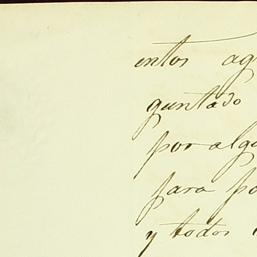 entos ag
guntado
por alg
para po
y todos